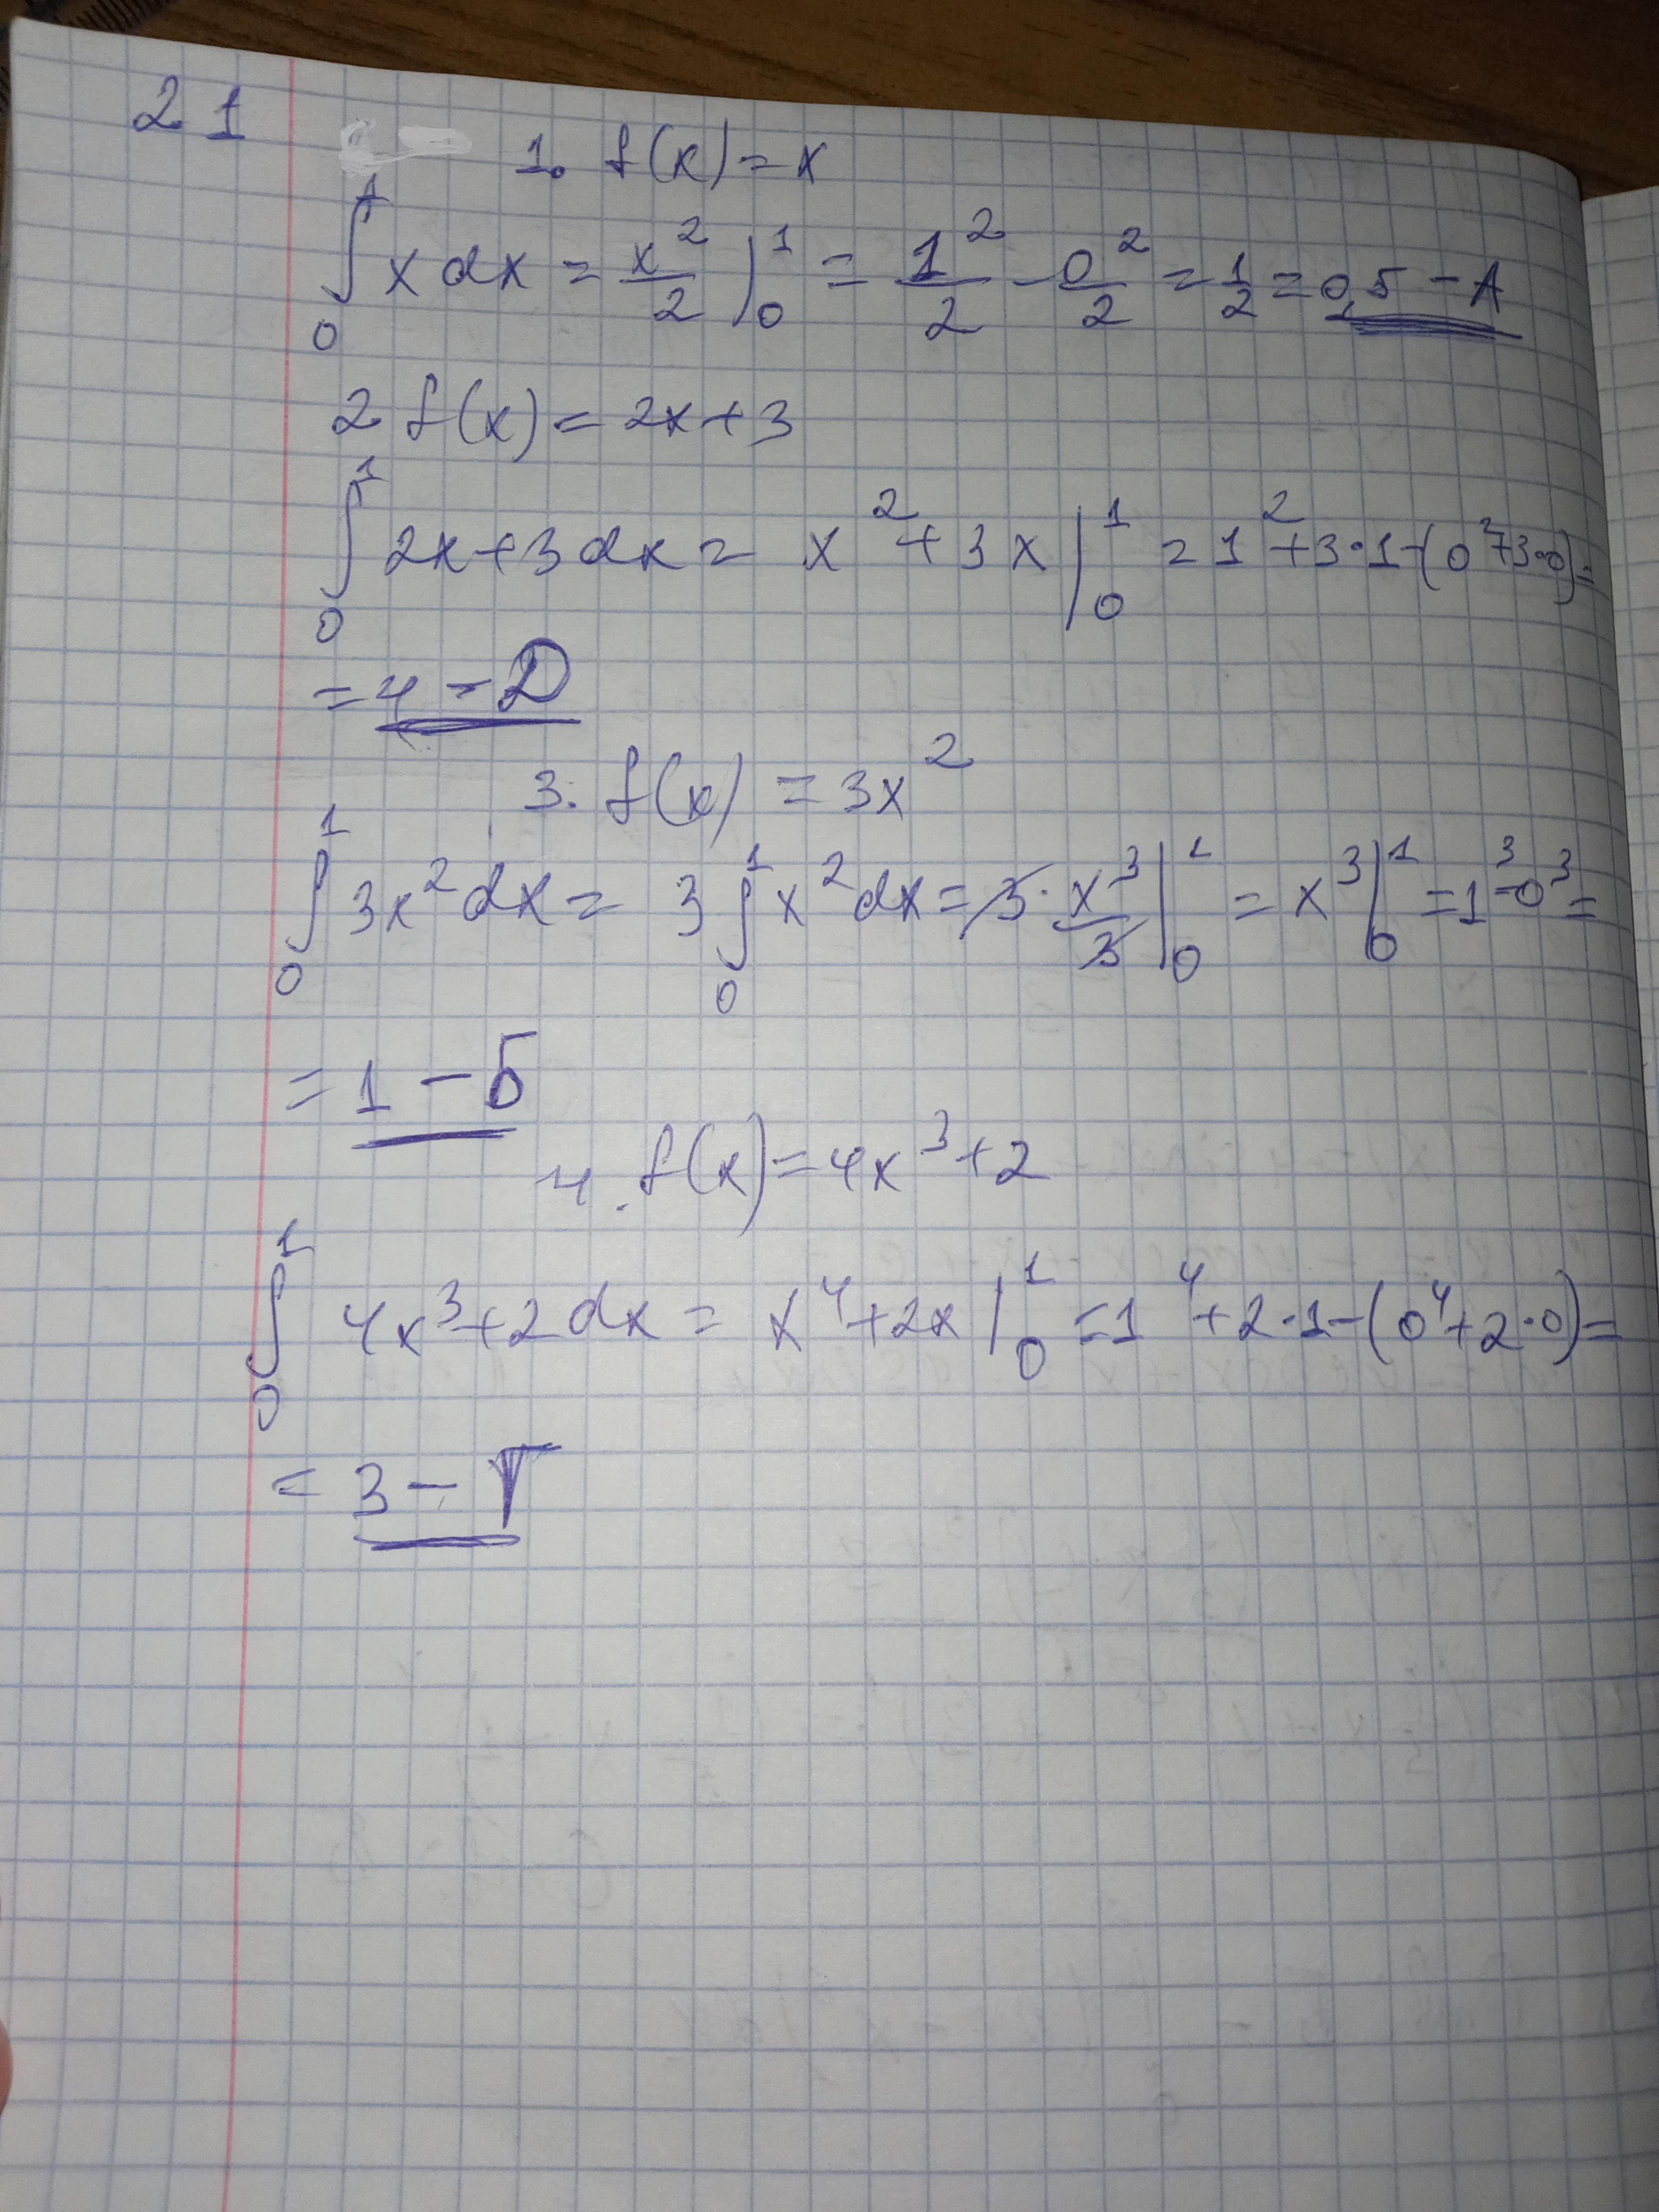 21
1. f(x) = x
∫₀¹ x dx = x²/2 |₀¹ = 1²/2 - 0²/2 = 1/2 = 0,5 - А
2 f(x) = 2x+3
∫₀¹ 2x+3 dx = x²+3x |₀¹ = 1²+3·1-(0²+3·0) =
= 4 - Д
3. f(x) = 3x²
∫₀¹ 3x² dx = 3 ∫₀¹ x² dx = 3· x³/3 |₀¹ = x³ |₀¹ = 1³-0³ =
= 1 - Б
4. f(x) = 4x³+2
∫₀¹ 4x³+2 dx = x⁴+2x |₀¹ = 1⁴+2·1-(0⁴+2·0) =
= 3 - Г